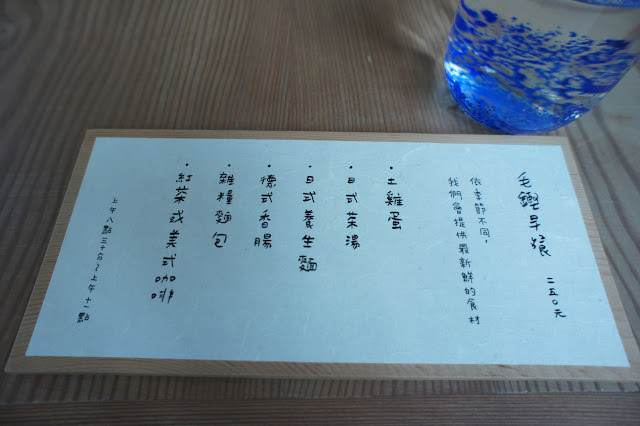 毛 早餐 二五〇元
依季節不同，
我們會提供最新鮮的食材
・土雞蛋
・日式菜湯
・日式養生麵
・德式香腸
・雜糧麵包
・紅茶或美式咖啡
上午八點三十分～上午十一點